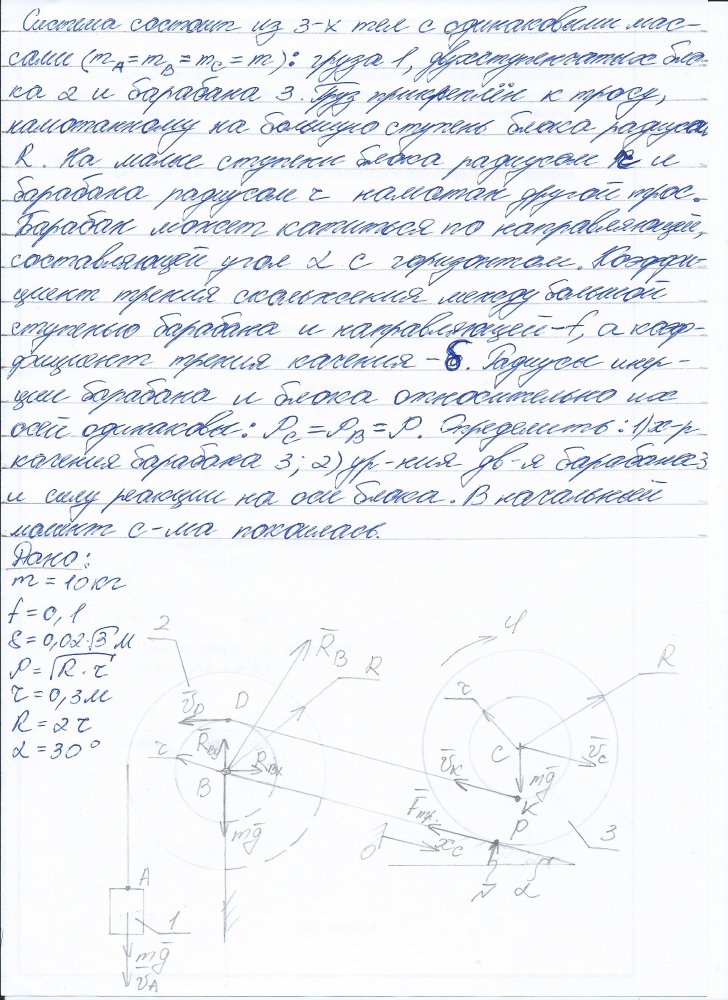 Система состоит из 3-х тел с одинаковыми мас-
сами (m_A = m_B = m_C = m): груза 1, двухступенчатых бло-
ка 2 и барабана 3. Груз прикреплён к тросу,
намотанному на большую ступень блока радиуса
R. На малые ступени блока радиусом r и
барабана радиусом r намотан другой трос.
Барабан может катиться по направляющей,
составляющей угол α с горизонтом. Коэффи-
циент трения скольжения между большой
ступенью барабана и направляющей - f, а коэф-
фициент трения качения - δ. Радиусы инер-
ции барабана и блока относительно их
осей одинаковы: ρ_C = ρ_B = ρ. Определить: 1) х-р
качения барабана 3; 2) ур-ния дв-я барабана 3
и силу реакции на оси блока. В начальный
момент с-ма покоилась.
Дано:
m = 10 кг
f = 0,1
δ = 0,02·√3 м
ρ = √(R·r)
r = 0,3 м
R = 2r
α = 30°
2
R̄_B
R
4
R
V̄_D
D
r
r
R̄_By
R̄_Bx
B
C
V̄_C
V̄_K
mḡ
K
mḡ
F̄тр.
P
3
O
x_C
N̄
α
A
1
mḡ
V̄_A